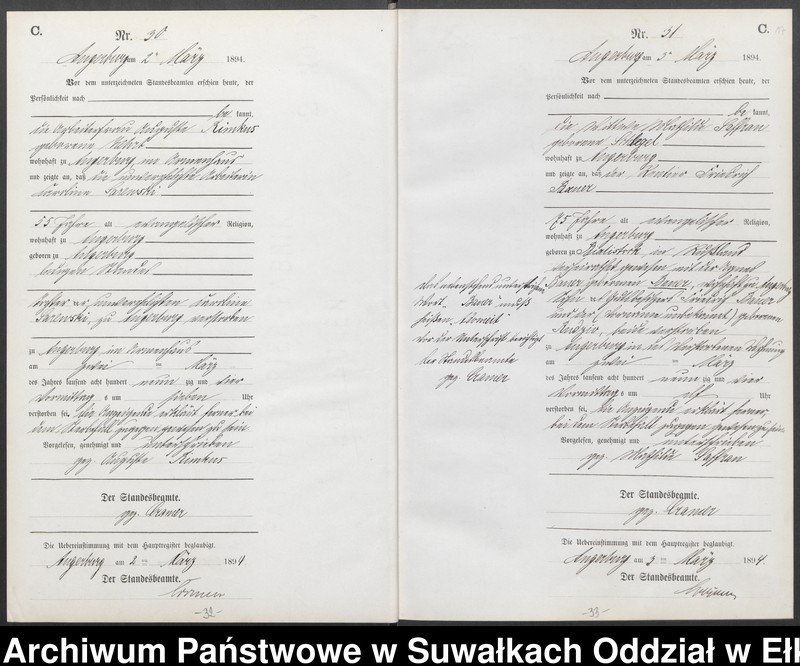 C.
Nr. 30
Angerburg am 2 ten März 1894.
Vor dem unterzeichneten Standesbeamten erschien heute, der
Persönlichkeit nach
be kannt,
die Arbeiterfrau Auguste Rimkus
geborene
wohnhaft zu Angerburg im Armenhaus
und zeigte an, daß die unverehelichte Arbeiterin
Caroline Sarewski
55 Jahre alt evangelischer Religion,
wohnhaft zu Angerburg
geboren zu Angerburg
Tochter der unverehelichten Caroline
Sarewski, zu Angerburg verstorben
zu Angerburg im Armenhaus
am zwei ten März
des Jahres tausend acht hundert neun zig und vier
Vormittags um sieben Uhr
verstorben sei. Die Anzeigende erklärt ferner, bei
dem Sterbfall zugegen gewesen zu sein
Vorgelesen, genehmigt und unterschrieben
gez. Auguste Rimkus
Der Standesbeamte.
gez. Cramer
Die Uebereinstimmung mit dem Hauptregister beglaubigt.
Angerburg am 2 ten März 1894
Der Standesbeamte.
Cramer
-32-
C.
Nr. 31
Angerburg am 3 März 1894.
Vor dem unterzeichneten Standesbeamten erschien heute, der
Persönlichkeit nach
be kannt,
die Wittwe Mathilde Saffran
geborene
wohnhaft zu Angerburg
und zeigte an, daß der Rentier Friedrich
75 Jahre alt evangelischer Religion,
wohnhaft zu Angerburg
geboren zu Bialistock in Rußland
verheirathet gewesen mit der
geborenen
Sohn des Gutsbesitzers Friedrich
und der (Vorname unbekannt) geborenen
beide verstorben
zu Angerburg in der Verstorbenen Wohnung
am zwei ten März
des Jahres tausend acht hundert neun zig und vier
Vormittags um elf Uhr
verstorben sei. Die Anzeigende erklärt ferner,
bei dem Sterbfall zugegen gewesen zu sein
Vorgelesen, genehmigt und unterschrieben
gez. Mathilde Saffran
Der Standesbeamte.
gez. Cramer
Die Uebereinstimmung mit dem Hauptregister beglaubigt.
Angerburg am 3 ten März 1894.
Der Standesbeamte.
-33-
Das nebenstehend unterstrichene
Wort muß
heißen
vor der Unterschrift berichtigt
Der Standesbeamte
gez. Cramer
Archiwum Państwowe w Suwałkach Oddział w Eł